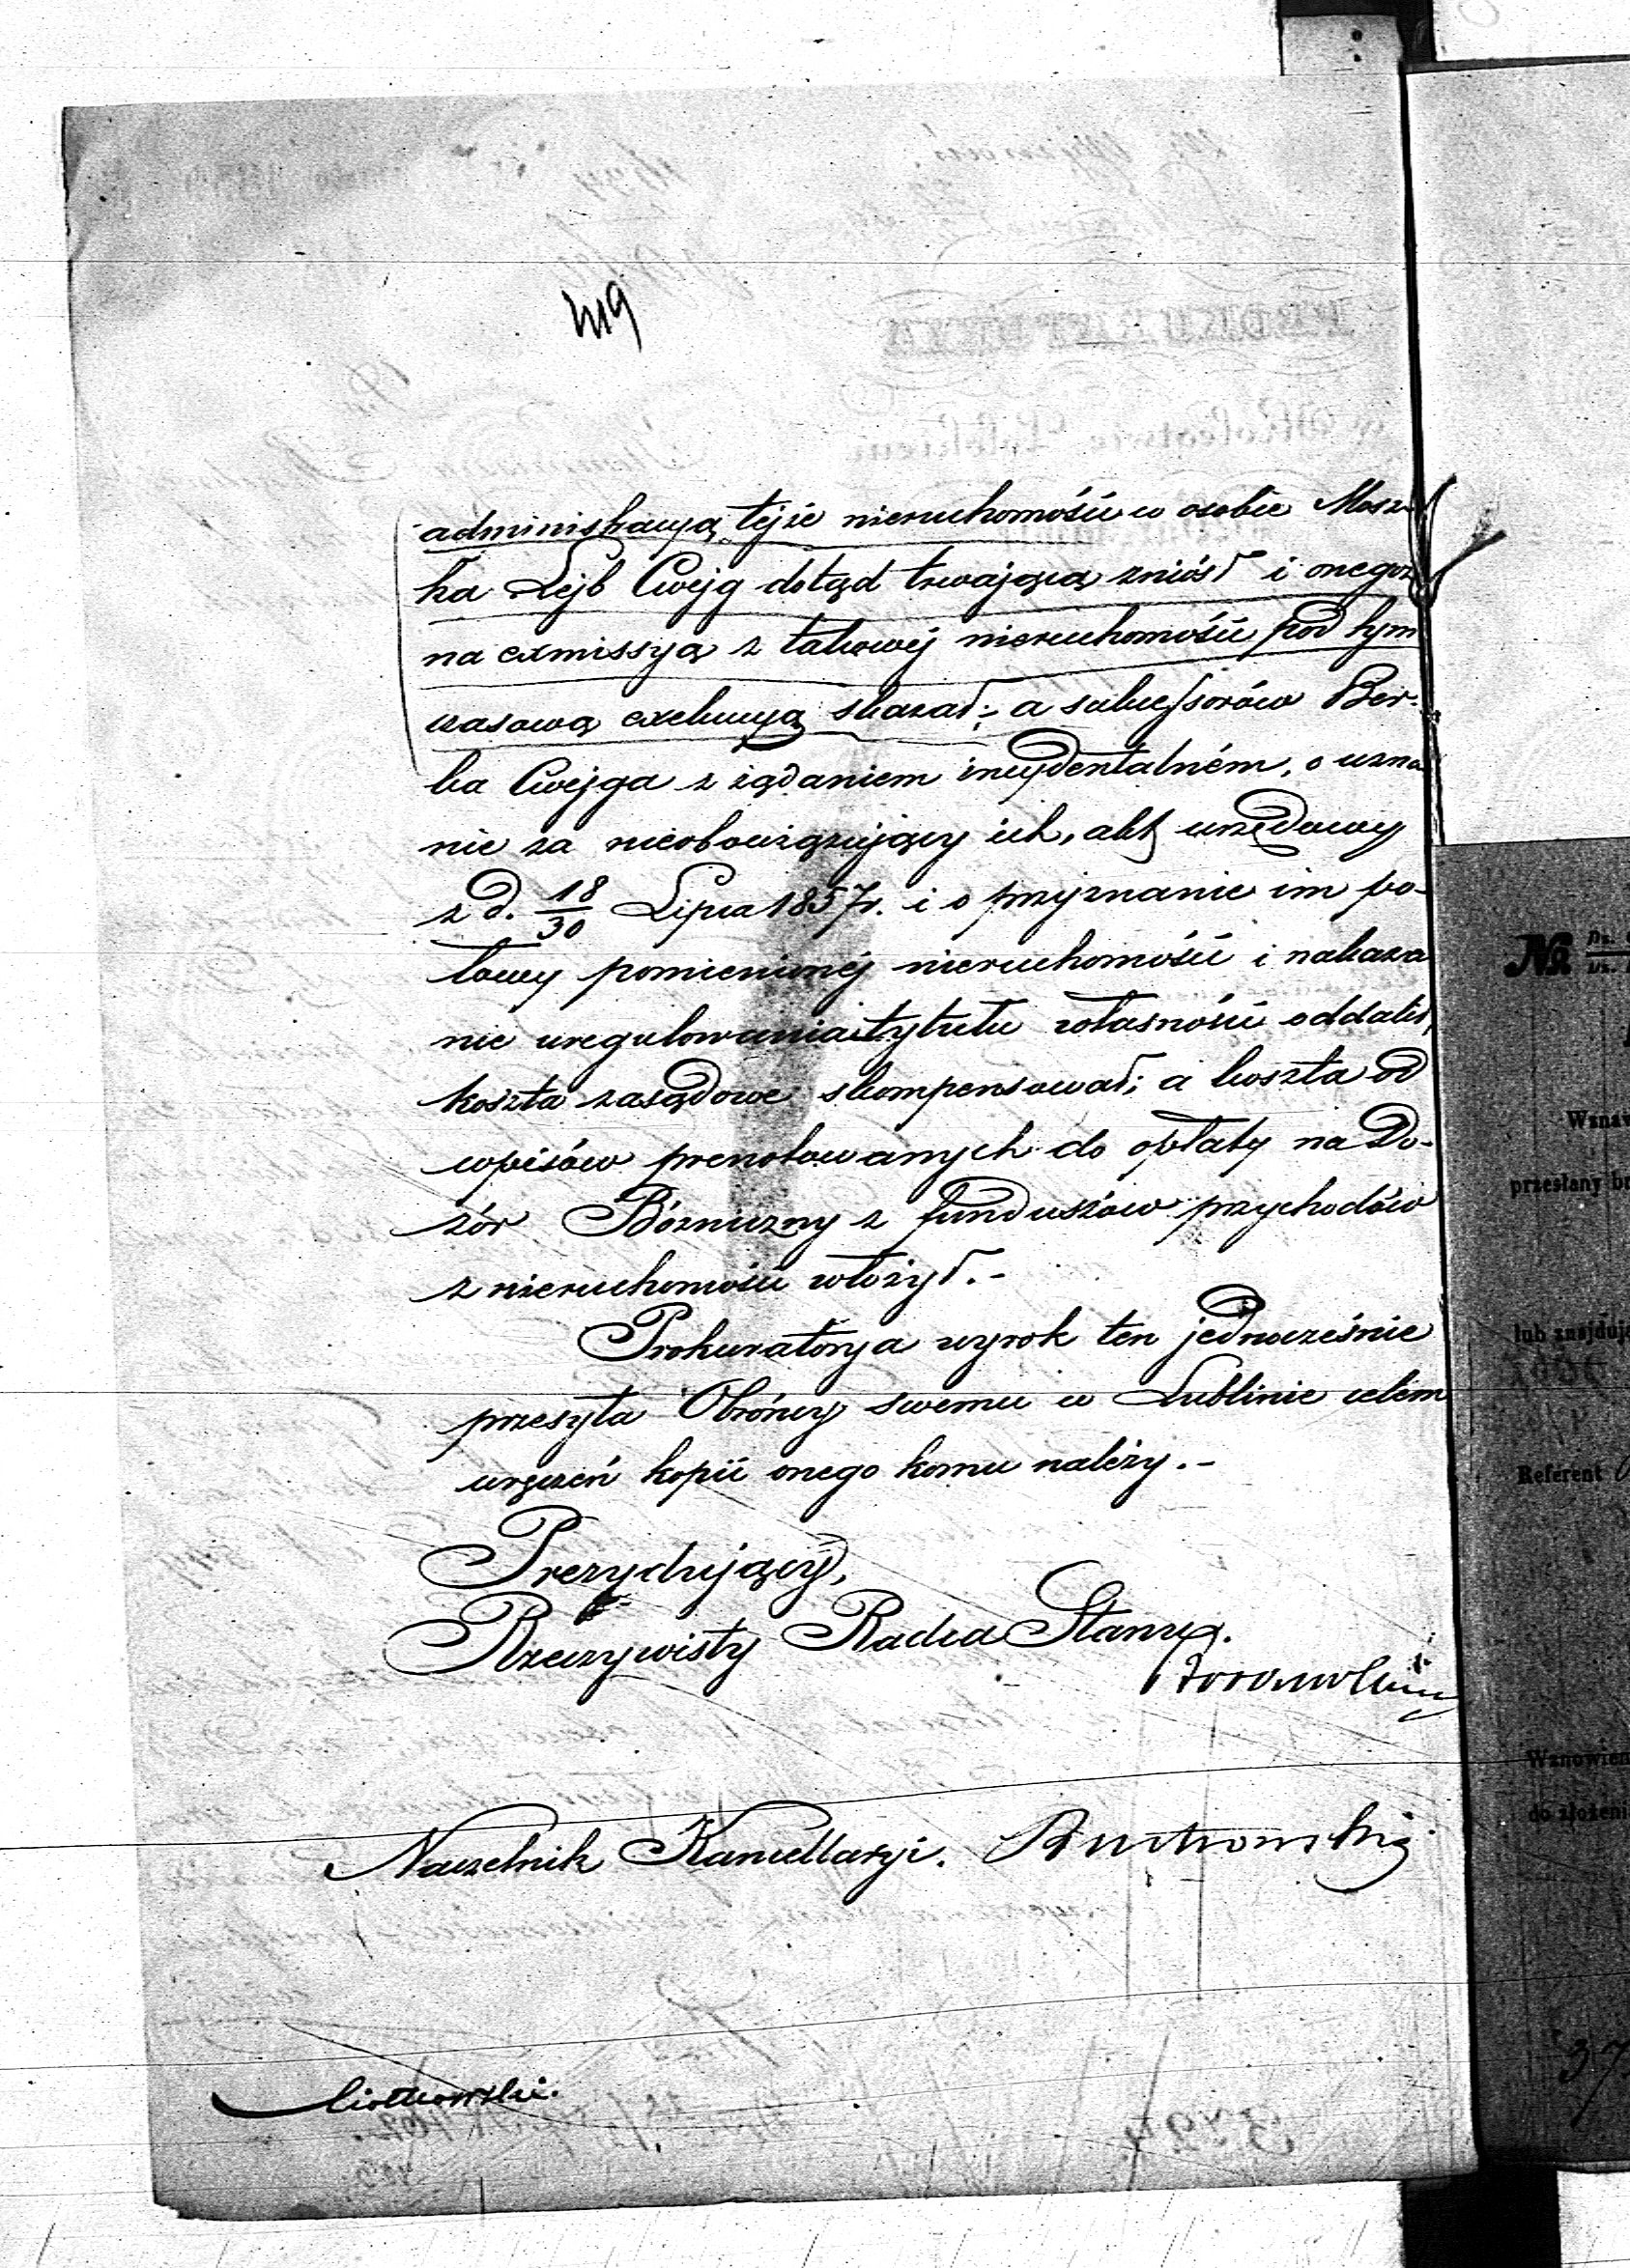 419
administracyą tejże nieruchomości w osobie Mosz-
ka Lejb Cwejg dotąd trwającą zniósł i onegoż
na exmissyą z takowej nieruchomości pod tym
czasową exekucyą skazał; a sukcessorów Ber-
ka Cwejga z żądaniem incydentalném, o uzna
nie za nieobowiązujący ich, akt urzędowy
z d. 18/30 Lipca 1857 r. i o przyznanie im po-
łowy pomienionéj nieruchomości i nakaza
nie uregulowania tytułu własności oddalił,
koszta zasądowe skompensował; a koszta od
wpisów prenotowanych do opłaty na Do-
zór Bóżniczny z funduszów przychodów
z nieruchomości włożył.-
Prokuratorya wyrok ten jednocześnie
przesyła Obrońcy swemu w Lublinie celem
wręczeń kopii onego komu należy.-
Prezydujący,
Rzeczywisty Radca Stanu.
Naczelnik Kancellaryi.
№
Wznaw
przesłany br
lub znajduj
Referent
Wznowien
do złożeni
37